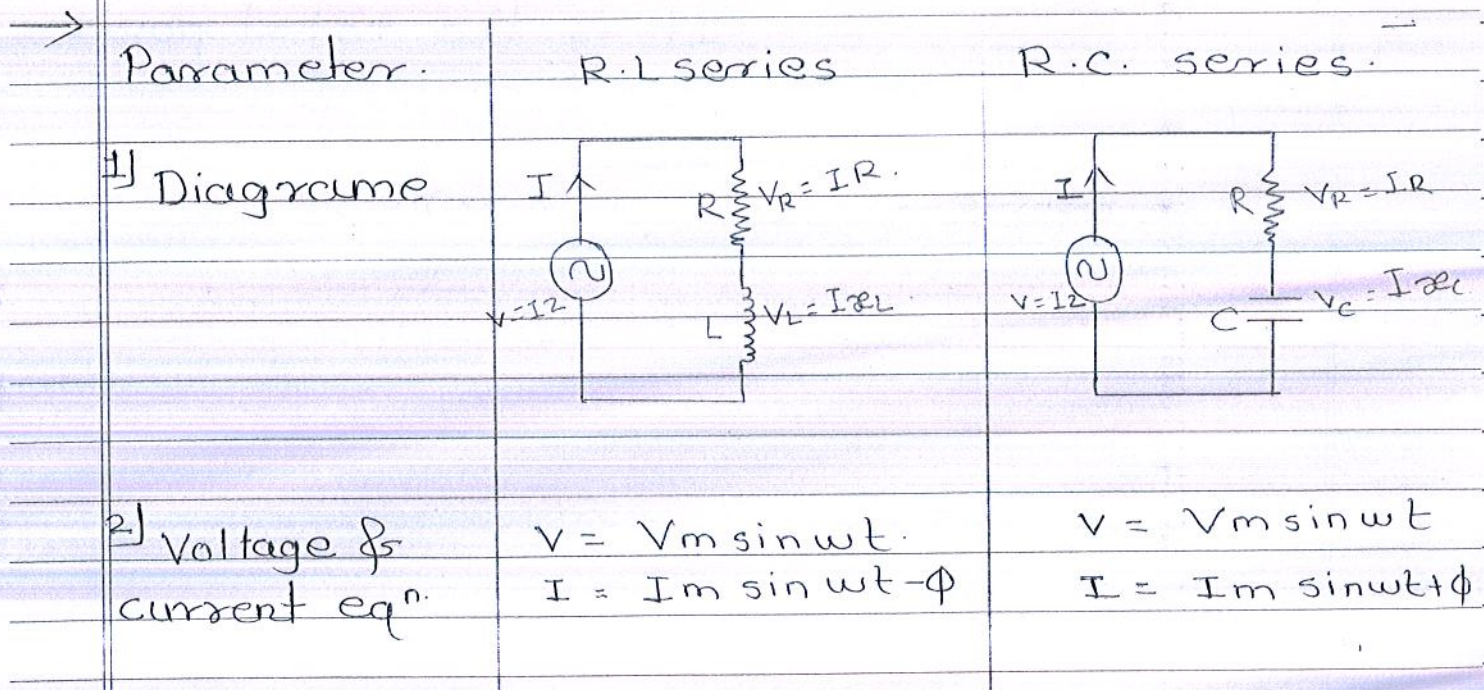 Parameter. R.L series R.C. series
1] Diagrame
I
R
VR = IR.
V = IZ
L
VL = IxL
I
R
VR = IR
V = IZ
C
VC = IxC
2] Voltage & V = Vm sinωt. V = Vm sinωt
current eqn. I = Im sin ωt -ϕ I = Im sinωt+ϕ